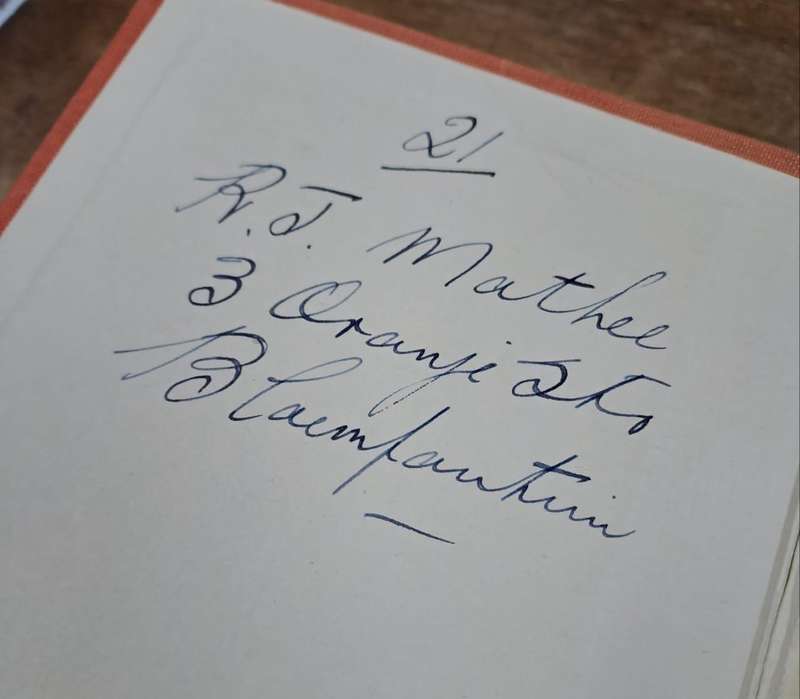 21
R.J. Mathee
3 Oranje Str
Bloemfontein